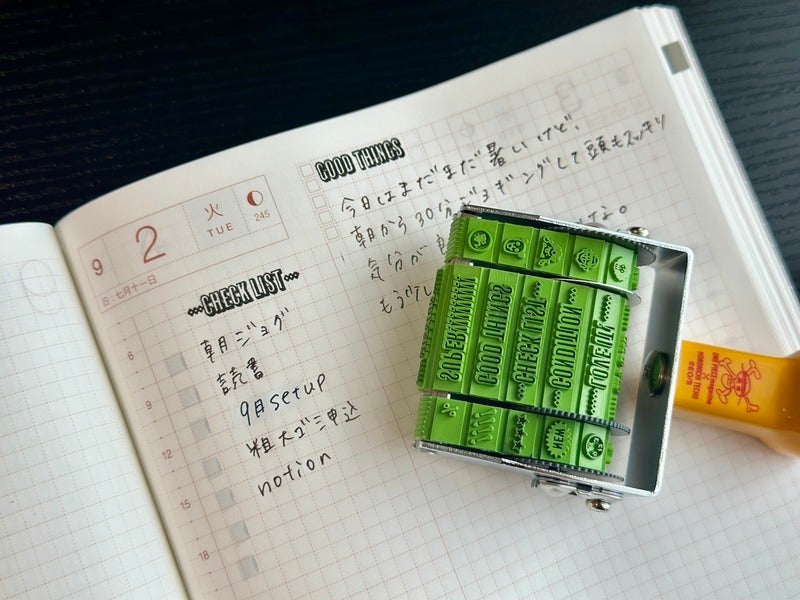 9
2
火
TUE
245
旧 七月十一日
CHECK LIST
朝ジョグ
読書
9月setup
粗大ゴミ申込
notion
6
9
12
15
18
GOOD THINGS
今日はまだまだ暑いけど、
朝から30分ジョギングして頭もスッキリ
気分が
もう少し
GOOD THINGS
CHECK LIST
CONDITION
MEMO
ONE PIECE magazine
×
HOBONICHI TECHO
©EO/S